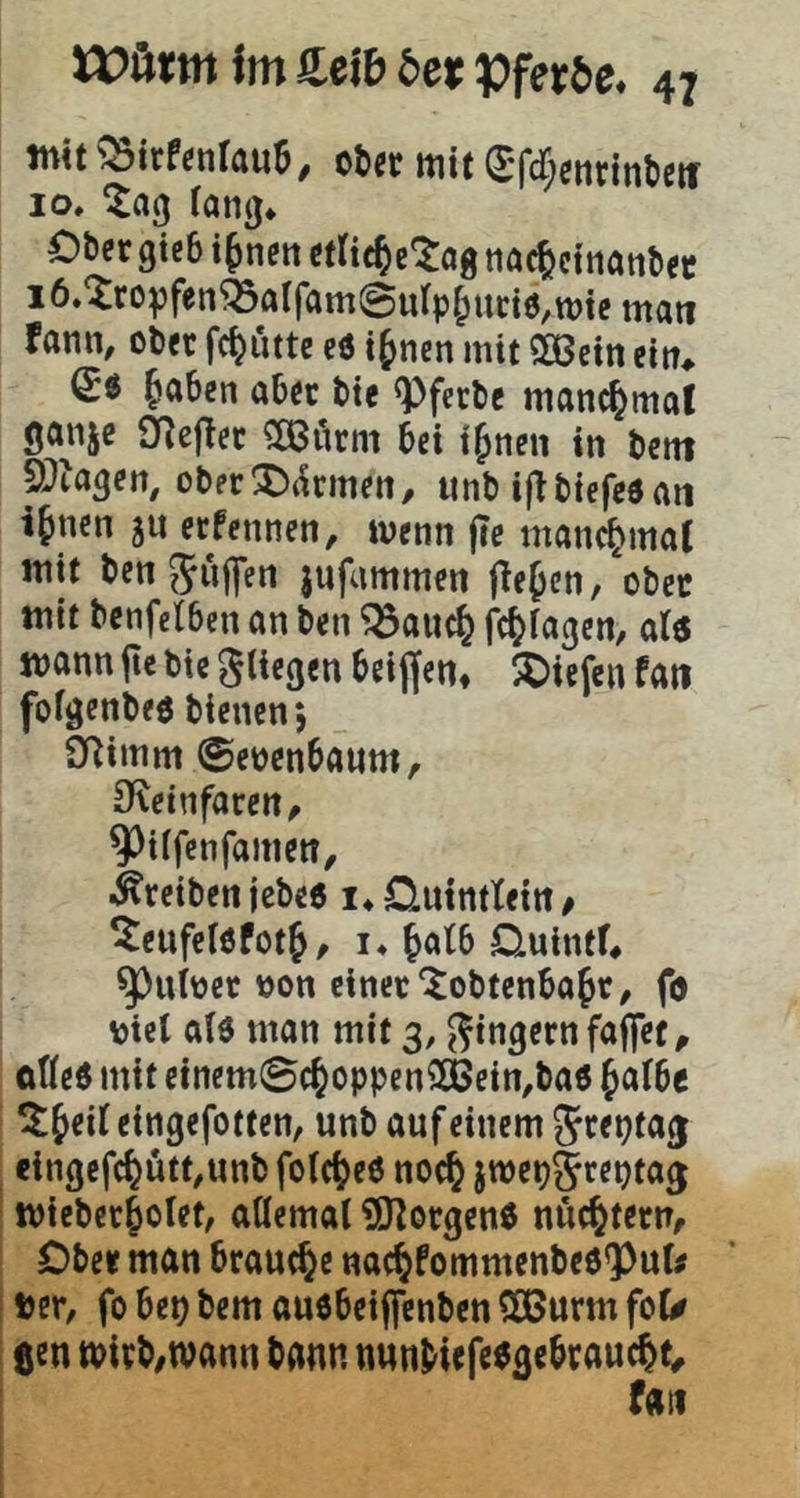 Würm im Leib der Pferde. 47
mit Birkenlaub, oder mit Eschenrinden
10. Tag lang.
Oder gieb ihnen etliche Tag nacheinander
16. Tropfen Balsam Sulphuris, wie man
kann, oder schütte es ihnen mit Wein ein.
Es haben aber die Pferde manchmal
ganze Nester Würm bei ihnen in dem
Magen, oder Därmen, und ist dieses an
ihnen zu erkennen, wenn sie manchmal
mit den Füssen zusammen stehen, oder
mit denselben an den Bauch schlagen, als
wann sie die Fliegen beissen. Diesen kan
folgendes dienen;
Nimm Sevenbaum,
Reinfaren,
Pilsensamen,
Kreiden jedes 1. Quintlein,
Teufelskoth, 1. halb Quintl.
Pulver von einer Todtenbahr, so
viel als man mit 3, Fingern fasset,
alles mit einem Schoppen Wein, das halbe
Theil eingesotten, und auf einem Freytag
eingeschütt, und solches noch zwey Freytag
wiederholet, allemal Morgens nüchtern,
Oder man brauche nachkommendes Pul-
ver, so bey dem ausbeissenden Wurm fol-
gen wird, wann dann nun dieses gebraucht,
kan